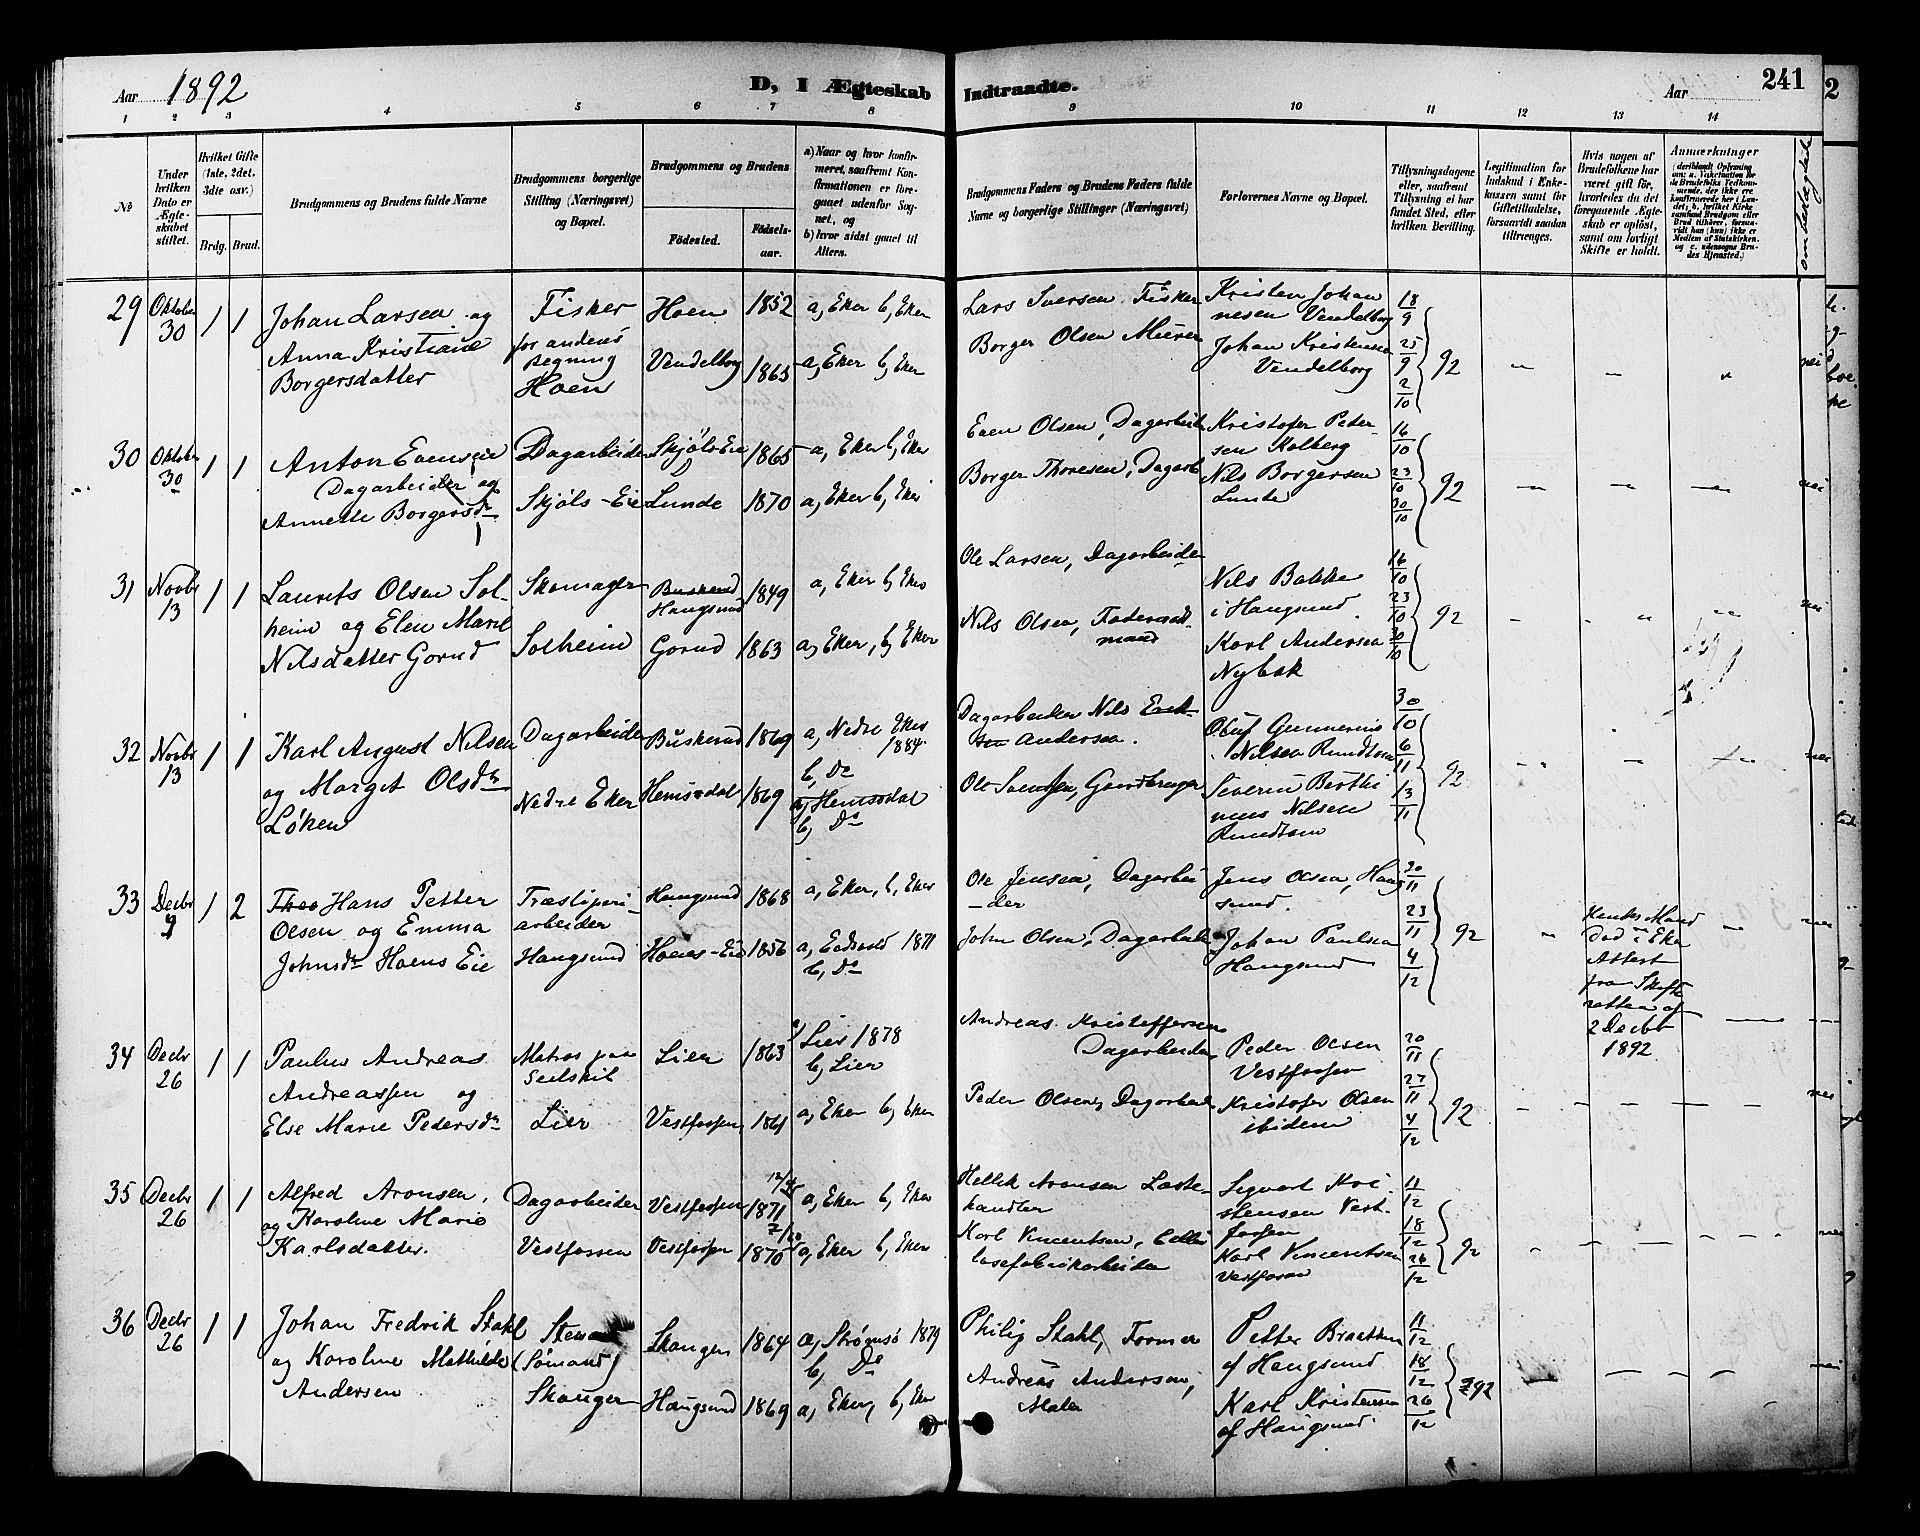 Aar 1892
D, I Ægteskab Indtraadte.
Aar
241
1 2 3 4 5 6 7 8 9 10 11 12 13 14
№
Under hvilken Dato er Ægteskabet stiftet.
Hvilket Gifte (1ste, 2det, 3die osv.)
Brdg. Brud.
Brudgommens og Brudens fulde Navne
Brudgommens borgerlige Stilling (Næringsvei) og Bopæl.
Brudgommens og Brudens
Fødested. Fødselsaar.
a) Naar og hvor konfirmeret, saafremt Konfirmationen er foregaaet udenfor Sognet, og
b) hvor sidst gaaet til Alters.
Brudgommens Faders og Brudens Faders fulde Navne og borgerlige Stillinger (Næringsvei)
Forlovernes Navne og Bopæl.
Tillysningsdagene eller, saafremt Tillysning ei har fundet Sted, efter hvilken Bevilling.
Legitimation for Indskud i Enkekassen samt for Giftetilladelse, forsaavidt saadan tiltrænges.
Hvis nogen af Brudefolkene har været gift før, hvorledes da det foregaaende Ægteskab er opløst, samt om lovligt Skifte er holdt.
Anmærkninger
29 Oktober 30 1 1
Johan Larsen og
Anna Kristiane
Borgersdatter
Fisker
for andres
Regning
Hoen
Hoen 1852 a, Eker b, Eker
Vendelborg 1865 a, Eker b, Eker
Lars Iversen Fisker
Borger Olsen Murer
Kristen Johan
nesen Vendelborg
Johan Kristensen
Vendelborg
18/9 25/9 2/10 92
nei
30 Oktober 30 1 1
Anton Evensen
Dagarbeider og
Annette Borgersdr
Dagarbeider
Skjøls-Eie
Skjøls Eie 1865 a, Eker b, Eker
Lunde 1870 a, Eker b, Eker
Even Olsen, Dagarbeid
Borger Thoresen, Dagarb
Kristofer Peter-
sen Kolberg
Nils Borgersen
Lunde
16/10 23/10 30/10 92
nei
31 Novbr 13 1 1
Laurits Olsen Sol-
heim og Elen Marie
Nilsdatter Gorud
Skomager
Solheim
Buskerud
Haugsund 1849 a, Eker b, Eker
Gorud 1863 a, Eker, b, Eker
Ole Larsen, Dagarbeider
Nils Olsen, Føderaads-
mand
Nils Bakke
i Haugsund.
Karl Andersen
Nybak
16/10 23/10 30/10 92
nei
32 Novbr 13 1 1
Karl August Nilsen
og Margit Olsdr
Løken
Dagarbeider
Nedre Eker
Buskerud 1869 a, Nedre Eker
1884.
b, Do
Hemsedal 1869 a, Hemsedal
b, Do
Dagarbeider Nils
Andersen.
Ole Svensen, Gaardbruger
Oluf Gunnerius
Nilsen Rundtom
Severin Berthi
nius Nilsen
Rundtom
30/10 6/11 13/11 92
nei
33 Decbr 9 1 2
Hans Petter
Olsen og Emma
Johnsdr Hoens Eie
Træsliperi-
arbeider
Haugsund
Haugsund 1868 a, Eker, b, Eker
Hoens-Eie 1856 a, Eidsvold 1871
b, Do
Ole Jensen, Dagarbei
-der
John Olsen, Dagarbeider
Jens Olsen, Haug
sund.
Johan Paulsen
Haugsund
30/11 23/11 4/12 92
Hendes Mand
død i Eker
Attest
fra Skifte
retten af
2 Decbr
1892
nei
34 Decbr 26 1 1
Paulus Andreas
Andreassen og
Else Marie Pedersdr
Matros paa
Seilskib
Lier
Lier 1863 a, Lier 1878
b, Lier
Vestfossen 1861 a, Eker b, Eker
Andreas Kristoffersen
Dagarbeider
Peder Olsen, Dagarbeid
Peder Olsen
Vestfossen
Kristofer Olsen
ibidem
20/11 27/11 4/12 92
nei
35 Decbr 26 1 1
Alfred Aronsen
og Karoline Marie
Karlsdatter.
Dagarbeider
Vestfossen
Vestfossen 1871 a, Eker b, Eker
Vestfossen 7/10 1870 a, Eker b, Eker
Hellek Aronsen Laste-
handler
Karl Vincentsen, Cellu
losefabrikarbeider
Sigvart Kri-
stensen Vest-
fossen
Karl Vincentsen
Vestfossen
11/12 18/12 26/12 92
nei
36 Decbr 26 1 1
Johan Fredrik Stahl
og Karoline Mathilde
Andersen
(Sømand)
Skauger
Skauger 1864 a, Strømsø 1879
b, Do
Haugsund 1869 a, Eker, b, Eker
Philip Stahl, Former
Andreas Andersen,
Maler
Petter Braathen
af Haugsund
Karl Kristensen
af Haugsund
11/12 18/12 26/12 92
nei